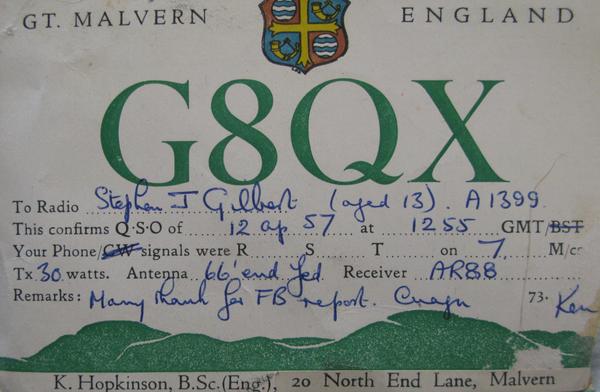 GT. MALVERN ENGLAND
G8QX
To Radio Stephen J Gilbert (aged 13). A1399
This confirms Q·S·O of 12 ap 57 at 1255 GMT/BST
Your Phone/CW signals were R S T on 7 M/cs
Tx 30 watts. Antenna 66' end fed Receiver AR88
Remarks: Many thank for FB report. 73. Ken
K. Hopkinson, B.Sc.(Eng.), 20 North End Lane, Malvern